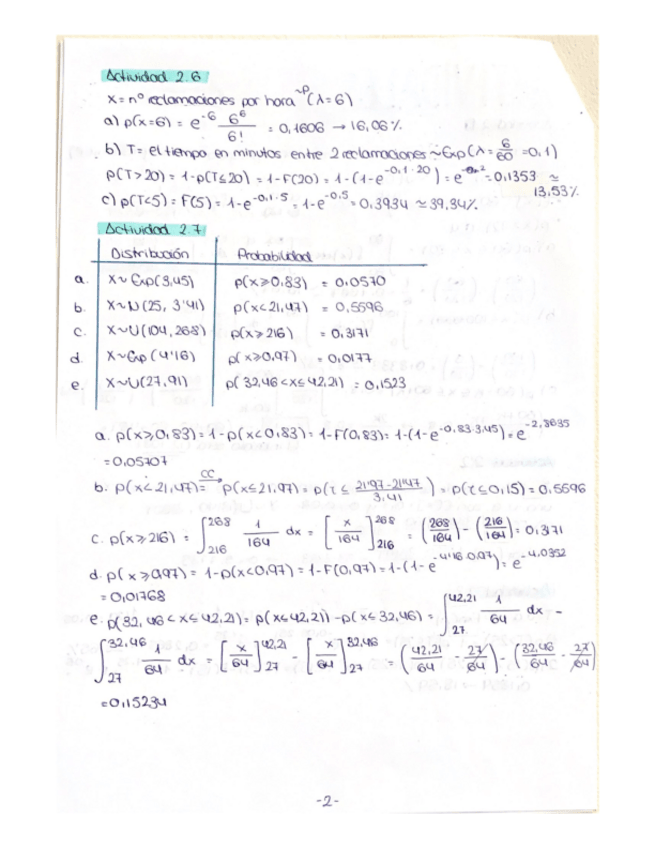 Actividad 2.6
X = nº reclamaciones por hora ~P(λ=6)
a) p(x=6) = e^-6 6^6/6! = 0,1606 → 16,06%
b) T = el tiempo en minutos entre 2 reclamaciones ~Exp(λ = 6/60 = 0,1)
p(T>20) = 1-p(T≤20) = 1-F(20) = 1-(1-e^-0,1·20) = e^-2 = 0,1353 ≃
13,53%
c) p(T<5) = F(5) = 1-e^-0,1·5 = 1-e^-0,5 = 0,3934 ≃ 39,34%
Actividad 2.7
Distribución Probabilidad
a. X~Exp(3,45) p(x≥0,83) = 0,0570
b. X~N(25, 3'41) p(x<21,47) = 0,5596
c. X~U(104,268) p(x≥216) = 0,3171
d. X~Exp(4'16) p(x≥0,97) = 0,0177
e. X~U(27,91) p(32,46<x≤42,21) = 0,1523
a. p(x≥0,83) = 1-p(x<0,83) = 1-F(0,83) = 1-(1-e^-0,83·3,45) = e^-2,8635
= 0,05707
b. p(x<21,47) = CC p(x≤21,97) = p(z ≤ 21'97-21'47/3,41) = p(z≤0,15) = 0,5596
c. p(x≥216) = ∫_216^268 1/164 dx = [x/164]_216^268 = (268/164) - (216/164) = 0,3171
d. p(x≥0,97) = 1-p(x<0,97) = 1-F(0,97) = 1-(1-e^-4'16·0,97) = e^-4,0352
= 0,01768
e. p(32,46<x≤42,21) = p(x≤42,21) - p(x≤32,46) = ∫_27^42,21 1/64 dx -
∫_27^32,46 1/64 dx = [x/64]_27^42,21 - [x/64]_27^32,46 = (42,21/64 - 27/64) - (32,46/64 - 27/64)
= 0,15234
-2-